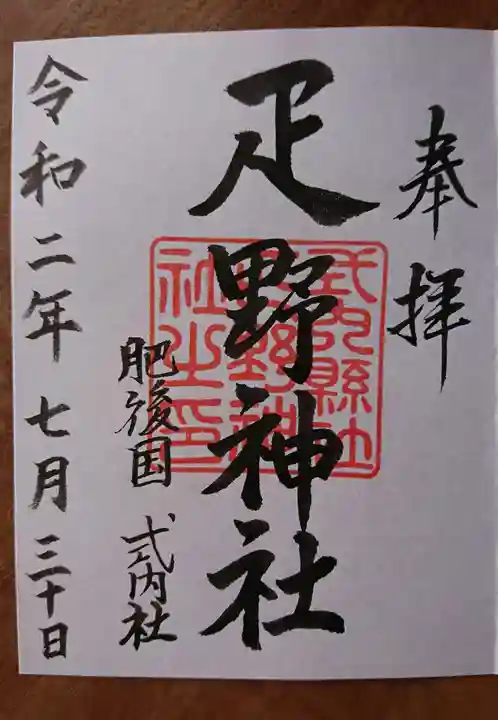 奉拝
疋野神社
式内縣社
社之印
肥後国 式内社
令和二年七月三十日